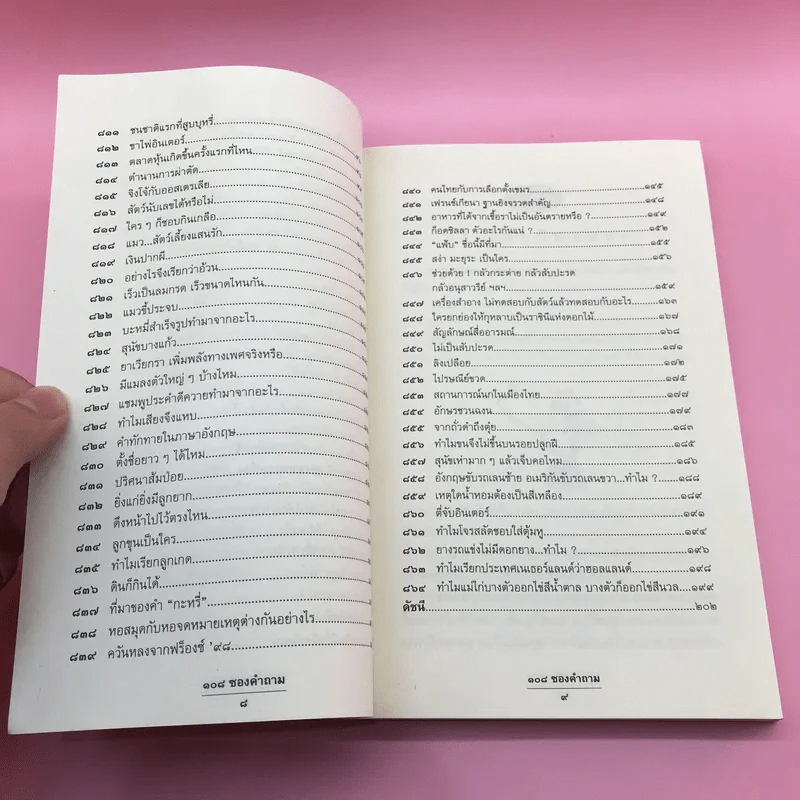 ๘๑๑ ชนชาติแรกที่สูบบุหรี่
๘๑๒ ขาไพ่อินเตอร์
๘๑๓ ตลาดหุ้นเกิดขึ้นครั้งแรกที่ไหน
๘๑๔ ตำนานการผ่าตัด
๘๑๕ จิงโจ้กับออสเตรเลีย
๘๑๖ สัตว์นับเลขได้หรือไม่
๘๑๗ ใคร ๆ ก็ชอบกินเกลือ
๘๑๘ แมว...สัตว์เลี้ยงแสนรัก
๘๑๙ เงินปากผี
๘๒๐ อย่างไรจึงเรียกว่าอ้วน
๘๒๑ เร็วเป็นลมกรด เร็วขนาดไหนกัน
๘๒๒ แมวขี้ประจบ
๘๒๓ บะหมี่สำเร็จรูปทำมาจากอะไร
๘๒๔ สุนัขบางแก้ว
๘๒๕ ยาเวียกรา เพิ่มพลังทางเพศจริงหรือ
๘๒๖ มีแมลงตัวใหญ่ ๆ บ้างไหม
๘๒๗ แชมพูประคำดีควายทำมาจากอะไร
๘๒๘ ทำไมเสียงจึงแหบ
๘๒๙ คำทักทายในภาษาอังกฤษ
๘๓๐ ตั้งชื่อยาว ๆ ได้ไหม
๘๓๑ ปริศนาส้มป่อย
๘๓๒ ยิ่งแก่ยิ่งมีลูกยาก
๘๓๓ ดึงหน้าไปไว้ตรงไหน
๘๓๔ ลูกขุนเป็นใคร
๘๓๕ ทำไมเรียกลูกเกด
๘๓๖ ดินก็กินได้
๘๓๗ ที่มาของคำ “กะหรี่”
๘๓๘ หอสมุดกับหอจดหมายเหตุต่างกันอย่างไร
๘๓๙ ควันหลงจากฟร็องซ์ ’๙๘
๑๐๘ ซองคำถาม
๘
๘๔๐ คนไทยกับการเลือกตั้งเขมร ๑๔๕
๘๔๑ เฟรนช์เกียนา ฐานยิงจรวดสำคัญ ๑๔๗
๘๔๒ อาหารที่ได้จากเชื้อราไม่เป็นอันตรายหรือ ? ๑๔๙
๘๔๓ ก็อดซิลลา ตัวอะไรกันแน่ ? ๑๕๒
๘๔๔ “แฟ้บ” ชื่อนี้มีที่มา ๑๕๕
๘๔๕ สง่า มะยุระ เป็นใคร ๑๕๖
๘๔๖ ช่วยด้วย ! กลัวกระต่าย กลัวสับปะรด
กลัวอนุสาวรีย์ ฯลฯ ๑๕๙
๘๔๗ เครื่องสำอาง ไม่ทดสอบกับสัตว์แล้วทดสอบกับอะไร ๑๖๓
๘๔๘ ใครยกย่องให้กุหลาบเป็นราชินีแห่งดอกไม้ ๑๖๗
๘๔๙ สัญลักษณ์สื่ออารมณ์ ๑๖๘
๘๕๐ ไม่เป็นสับปะรด ๑๗๑
๘๕๑ ลิงเปลือย ๑๗๒
๘๕๒ ไปรษณีย์ขวด ๑๗๕
๘๕๓ สถานการณ์นกในเมืองไทย ๑๗๗
๘๕๔ อักษรชวนฉงน ๑๗๙
๘๕๕ จากถั่วดำถึงตุ๋ย ๑๘๓
๘๕๖ ทำไมขนจึงไม่ขึ้นบนรอยปลูกฝี ๑๘๕
๘๕๗ สุนัขเห่ามาก ๆ แล้วเจ็บคอไหม ๑๘๖
๘๕๘ อังกฤษขับรถเลนซ้าย อเมริกันขับรถเลนขวา...ทำไม ? ๑๘๘
๘๕๙ เหตุใดน้ำหอมต้องเป็นสีเหลือง ๑๘๙
๘๖๐ ตี่จับอินเตอร์ ๑๙๑
๘๖๑ ทำไมโจรสลัดชอบใส่ตุ้มหู ๑๙๔
๘๖๒ ยางรถแข่งไม่มีดอกยาง...ทำไม ? ๑๙๖
๘๖๓ ทำไมเรียกประเทศเนเธอร์แลนด์ว่าฮอลแลนด์ ๑๙๘
๘๖๔ ทำไมแม่ไก่บางตัวออกไข่สีน้ำตาล บางตัวก็ออกไข่สีนวล ๑๙๙
ดัชนี ๒๐๒
๑๐๘ ซองคำถาม
๙